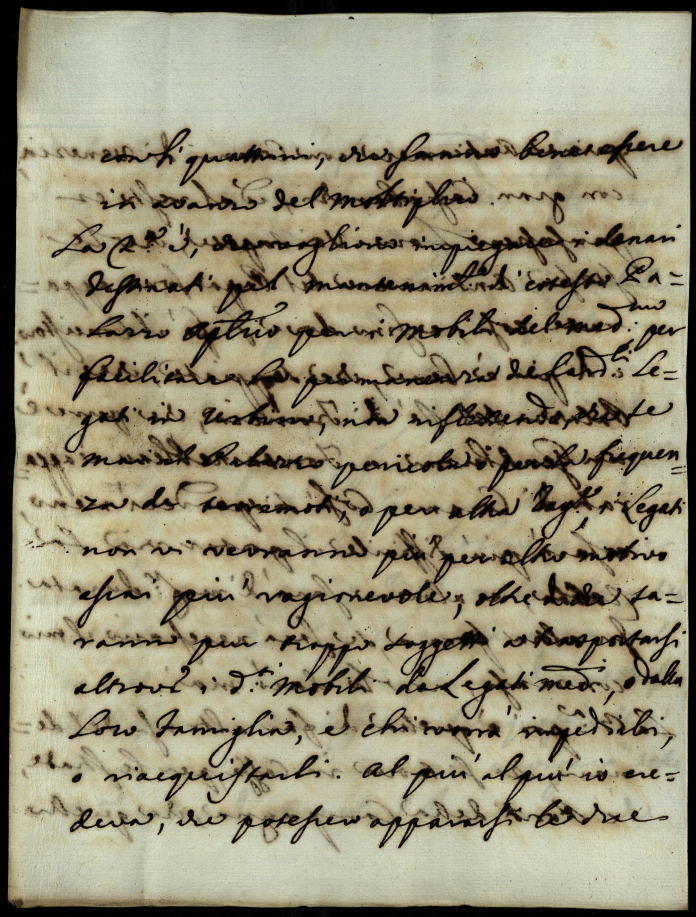 con li quattrini, che saranno bene spere
in avanzo del moltiplico.
La 2.ª è, che vogliono impiegare i denari
destinati pel mantenim.to di cotesto Pa=
lazzo Ap.lico per i mobili del med.mo per
facilitare la permanenza de Card.li Le=
gati in Urbino, non riflettendo, che te
il Palazzo pericola o per la frequen=
za de' terremoti, o per altra cag.e i Legati
non vi verranno più per altro motivo
assai più ragionevole, oltre di che sa=
ranno pur troppo soggetti a trasportarsi
altrove i d.ti Mobili da Legati med.i, o dalla
Loro famiglia, e chi vorrà impedirli,
o riacquistarli. Al più al più io cre=
derei, che potessero appararsi le due